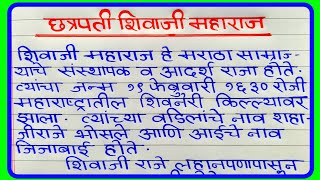 छत्रपती शिवाजी महाराज
शिवाजी महाराज हे मराठा साम्राज्
याचे संस्थापक व आदर्श राजा होते.
त्यांचा जन्म १९ फेब्रुवारी १६३० रोजी
महाराष्ट्रातील शिवनेरी किल्ल्यावर
झाला. त्यांच्या वडिलांचे नाव शहा-
जीराजे भोसले आणि आईचे नाव
जिजाबाई होते.
शिवाजी राजे लहानपणापासून